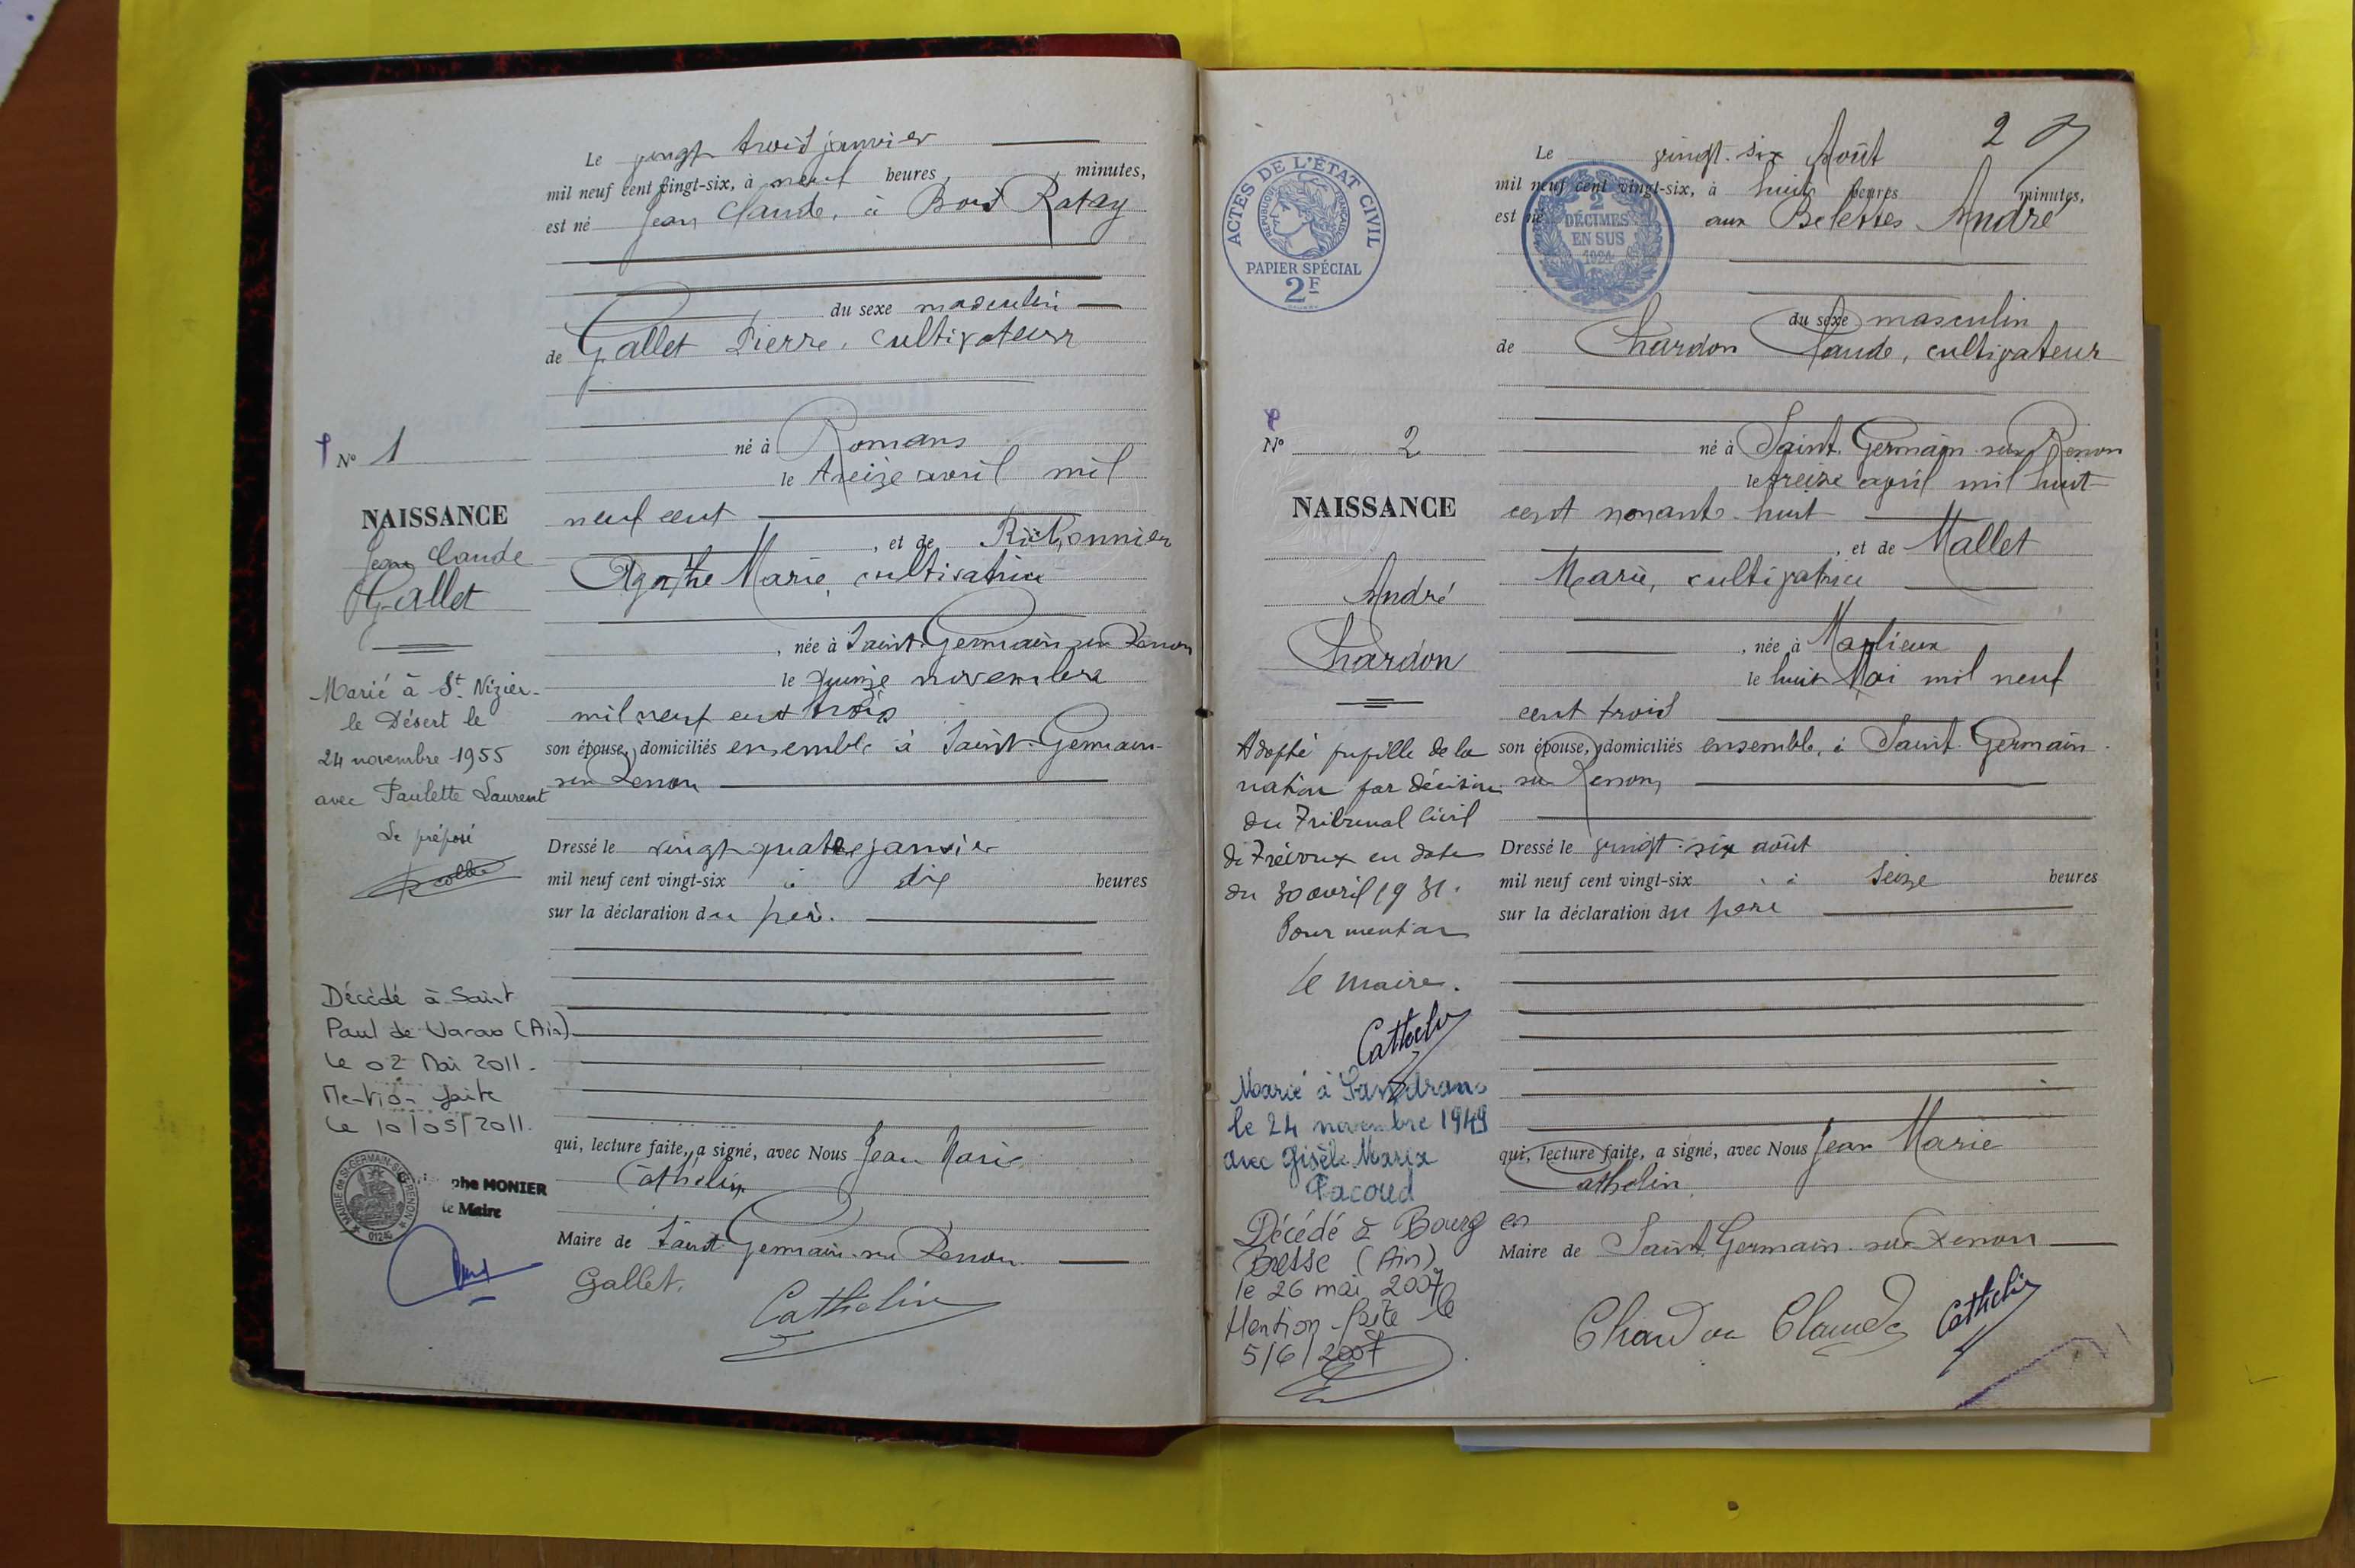 Le vingt trois janvier
mil neuf cent vingt-six, à neuf heures, minutes,
est né Jean Claude, à Bois Ratay
du sexe masculin
de Gallet Pierre, cultivateur
né à Romans
le treize avril mil
neuf cent
, et de
Agathe Marie, cultivatrice
, née à Saint Germain sur Renon
le quinze novembre
mil neuf cent trois
son épouse, domiciliés ensemble à Saint-Germain-
sur Renon
Dressé le vingt quatre janvier
mil neuf cent vingt-six à dix heures
sur la déclaration du père.
qui, lecture faite, a signé, avec Nous Jean Marie
Cathelin
Maire de Saint-Germain-sur Renon
Gallet.
Cathelin
N° 1
NAISSANCE
Jean Claude
Gallet
Marié à St. Nizier-
le Désert le
24 novembre 1955
avec Paulette Laurent
Le préposé
Décédé à Saint
Paul de Varax (Ain)
Le 02 Mai 2011.
Mention faite
Le 10/05/2011.
MAIRIE de St-GERMAIN-S/-RENON
01240
phe MONIER
le Maire
2
Le vingt-six Août
mil neuf cent vingt-six, à huit heures minutes,
est né aux Beletses André
du sexe masculin
de Chardon Claude, cultivateur
né à Saint-Germain-sur Renon
le treize avril mil huit
cent nonante-huit
, et de Mallet
Marie, cultivatrice
, née à Marlieux
le huit Mai mil neuf
cent trois
son épouse, domiciliés ensemble, à Saint-Germain
sur Renon,
Dressé le vingt-six août
mil neuf cent vingt-six à seize heures
sur la déclaration du père
qui, lecture faite, a signé, avec Nous Jean Marie
Cathelin
Maire de Saint-Germain-sur Renon
Chardon Claude Cathelin
ACTES DE L'ÉTAT CIVIL
RÉPUBLIQUE FRANÇAISE
PAPIER SPÉCIAL
2F
2
DÉCIMES
EN SUS
1924
N° 2
NAISSANCE
André
Chardon
Adopté pupille de la
nation par décision
du Tribunal Civil
de Trévoux en date
du 30 avril 1931.
Pour mention
Le Maire.
Cathelin
Marié à Sandrans
le 24 novembre 1949
avec Gisèle Maria
Pacoud
Décédé à Bourg en
Bresse (Ain)
le 26 mai 2007
Mention faite le
5/6/2007